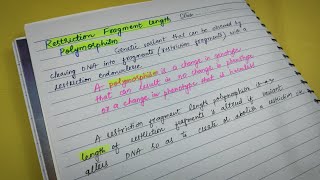 Restriction Fragment Length
Polymorphism
Genetic variant that can be assessed by
cleaving DNA into fragments (restriction fragments) with a
restriction endonuclease.
A polymorphism is a change in genotype
that can result in no change in phenotype
or a change in phenotype that is harmless
A restriction fragment length polymorphism
length of restriction fragments is altered if variant
alters DNA so as to create or abolish a restriction